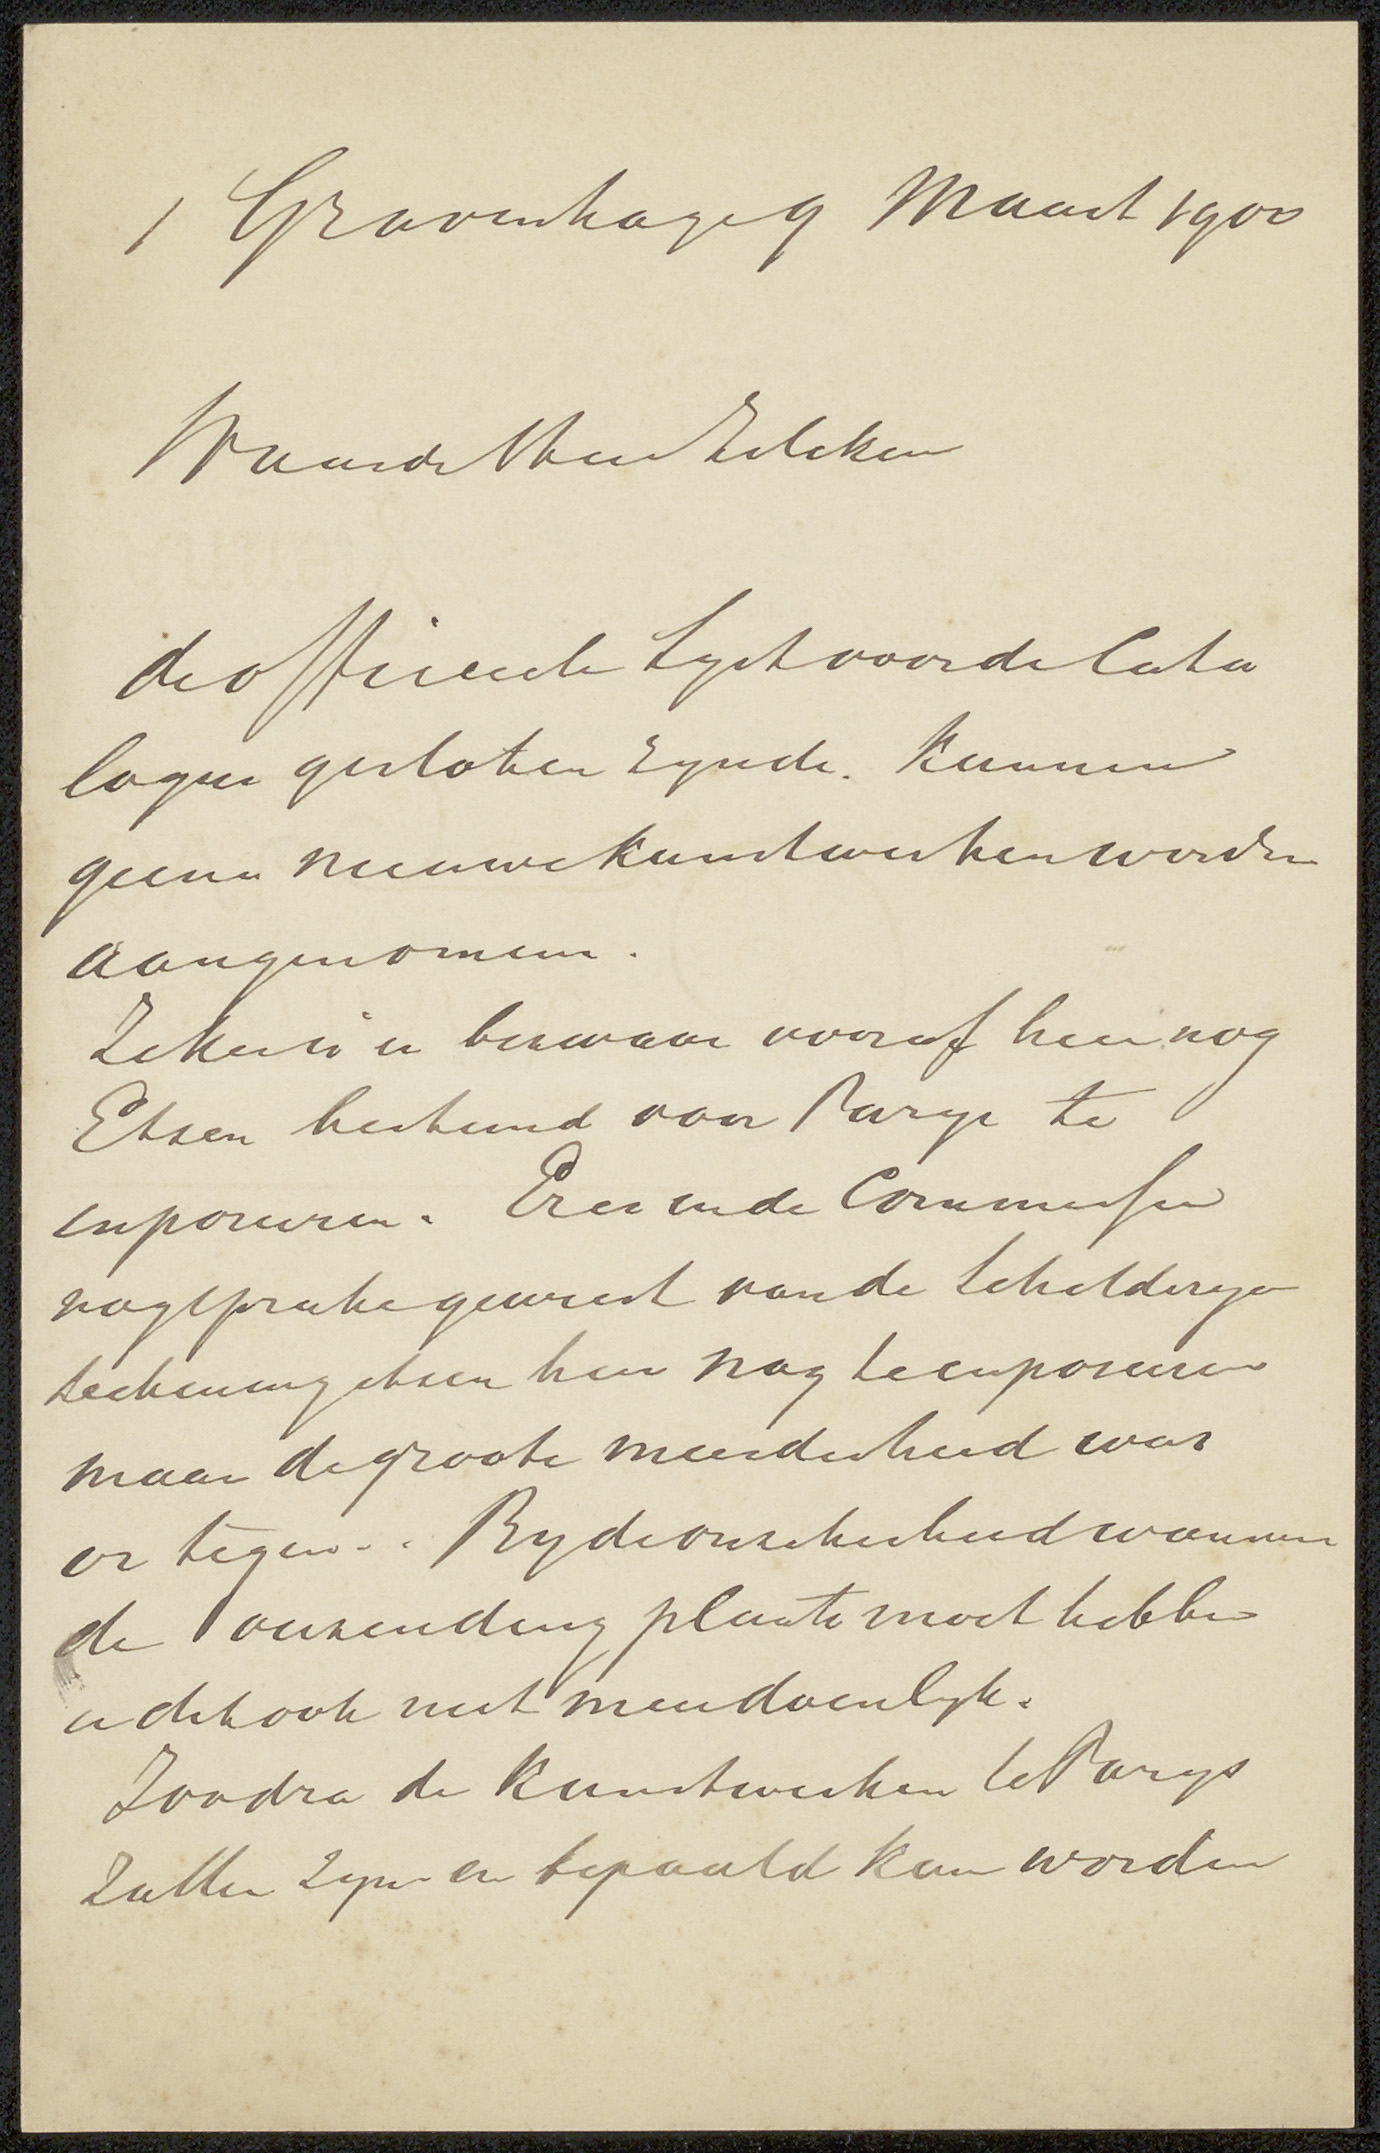 s Gravenhage 9 Maart 1900
Waarde Heer Zilcken
de officieele Lyst voor de Cata
logus gesloten zynde. Kunnen
geene nieuwe Kunstwerken worden
aangenomen.
Zeker is er bezwaar vooraf hier nog
Etsen bestemd voor Parys te
exposeeren. Er is in de Commissie
nog sprake geweest van de Schilderyen
teekening etsen hier nog te exposeeren
maar de groote meerderheid was
er tegen.. By de onzekerheid wanneer
de inzending plaats moet hebben
is dit ook niet meer doenlyk.
Zoodra de Kunstwerken te Parys
zullen zyn en bepaald kan worden